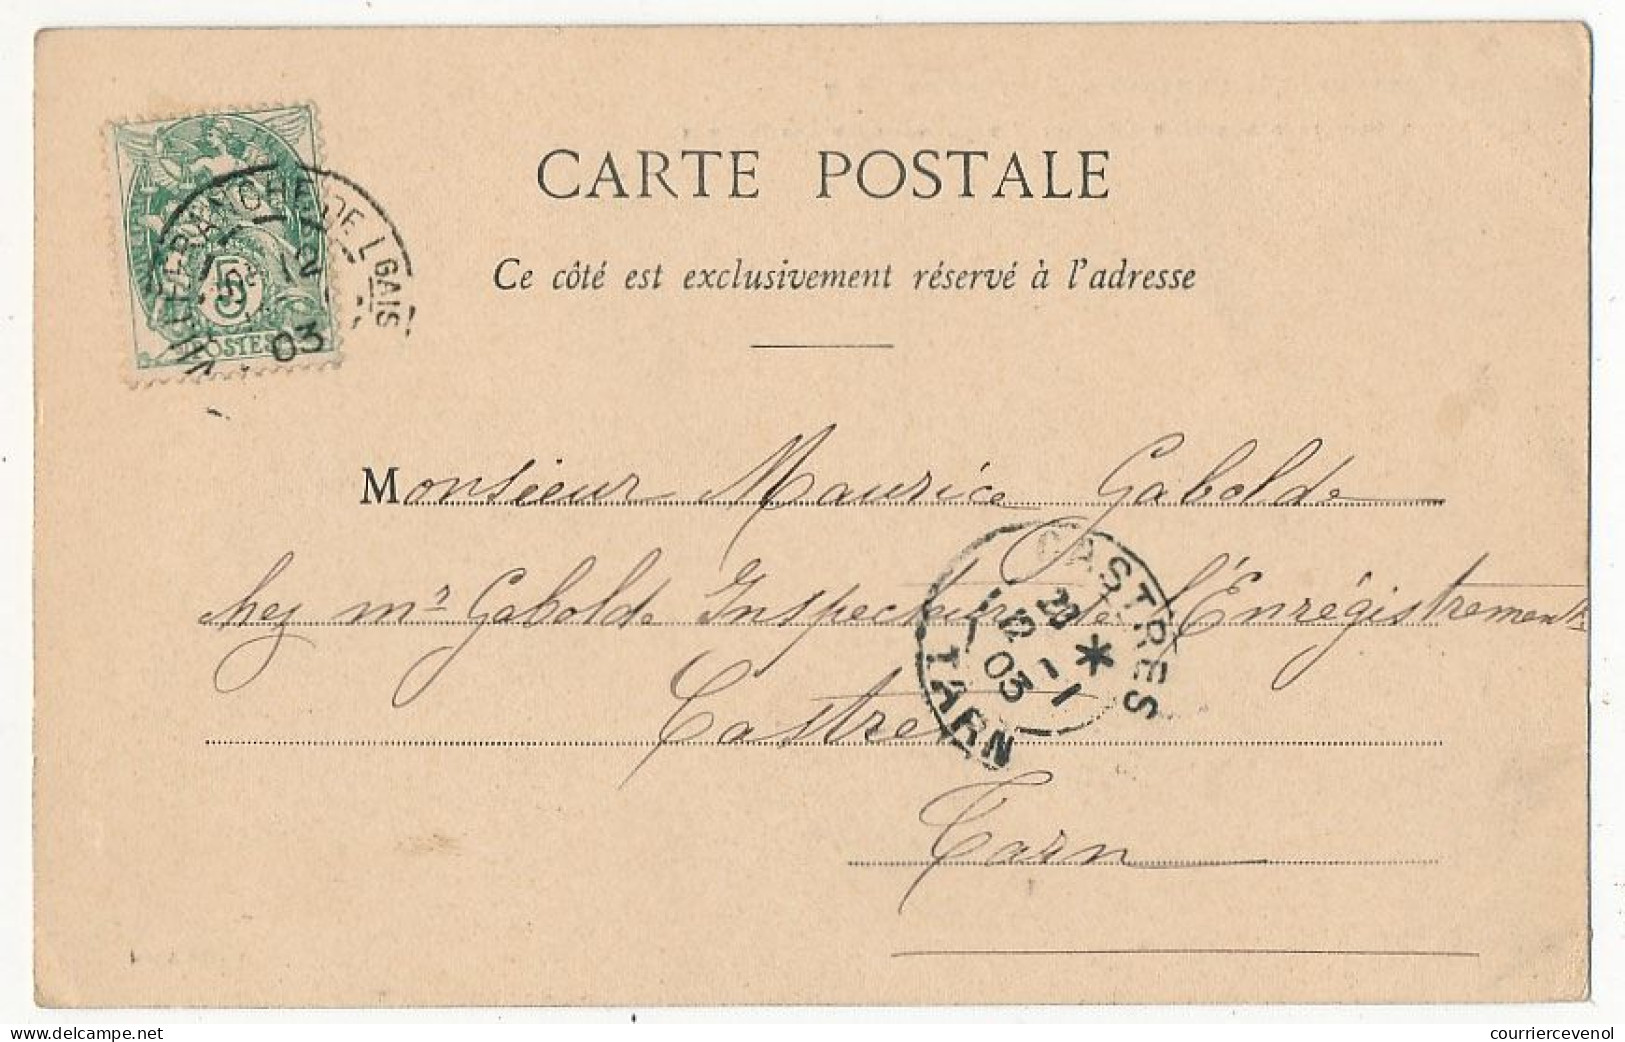 CARTE POSTALE
Ce côté est exclusivement réservé à l'adresse
5
POSTES
VILLEFRANCHE DE L GAIS
03
Monsieur Maurice Gabolde
chez mr Gabolde Inspecteur de l'Enrégistrement
Castres
Tarn
CASTRES
23
12
03
TARN
courriercevenol
www.delcampe.net